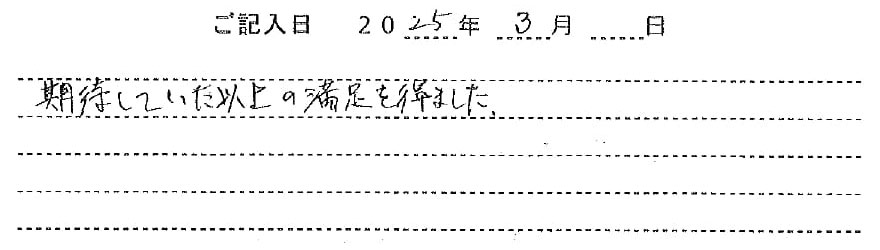 ご記入日 2025年 3月 日
期待していた以上の満足を得ました。